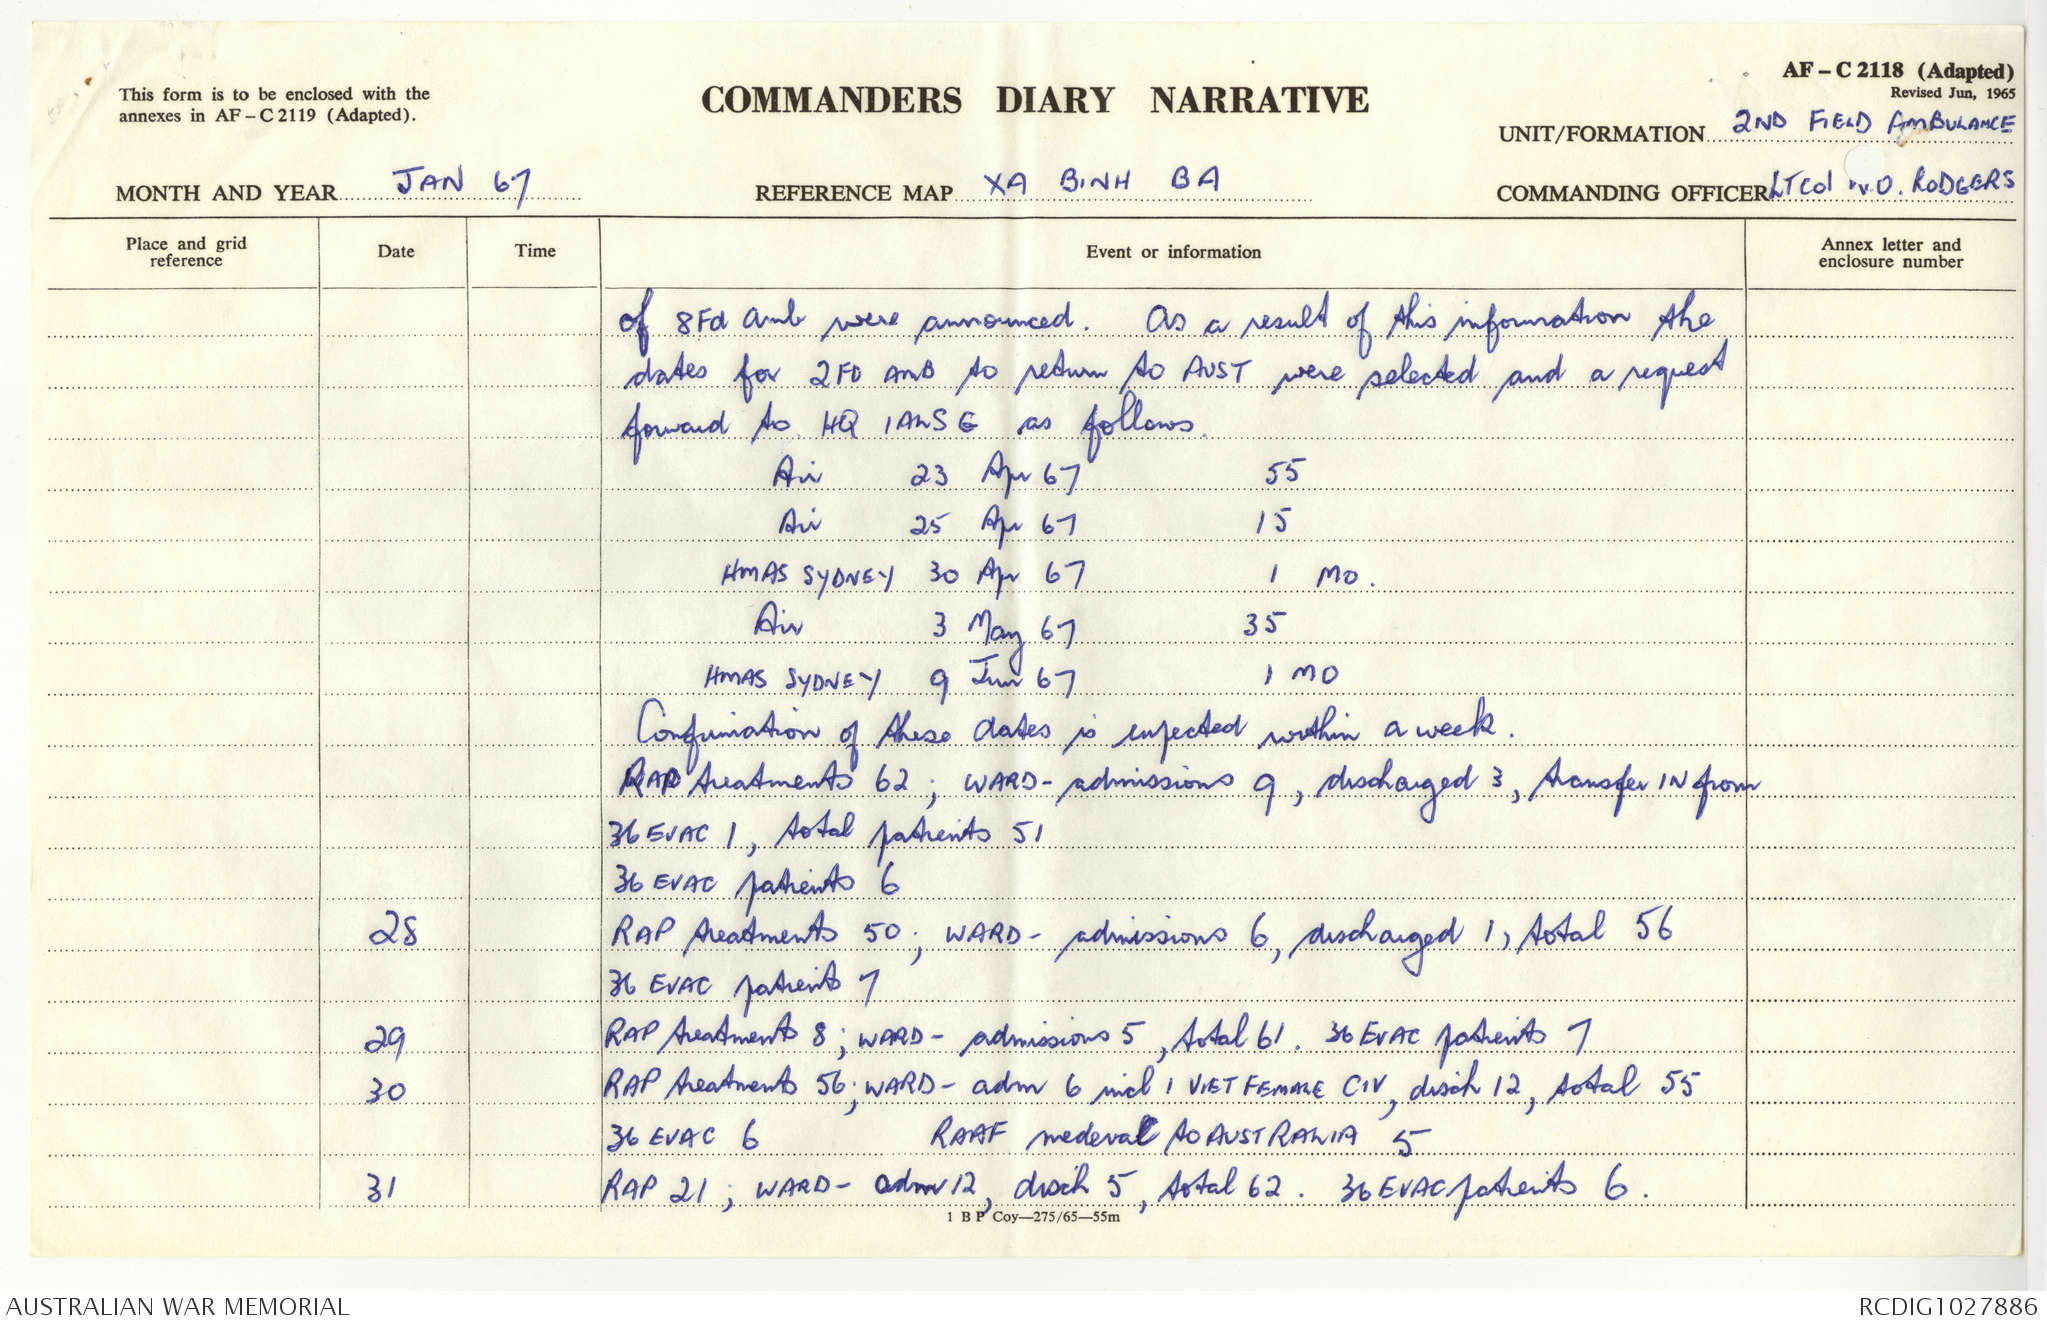 This form is to be enclosed with the
annexes in AF – C 2119 (Adapted).
COMMANDERS DIARY NARRATIVE
AF – C 2118 (Adapted)
Revised Jun, 1965
UNIT/FORMATION 2ND FIELD AMBULANCE
MONTH AND YEAR JAN 67
REFERENCE MAP XA BINH BA
COMMANDING OFFICER LTCol W.O. RODGERS
Place and grid
reference
Date
Time
Event or information
Annex letter and
enclosure number
of 8Fd Amb were announced. As a result of this information the
dates for 2FD AMB to return to AUST were selected and a request
forward to HQ 1ALSG as follows.
Air 23 Apr 67 55
Air 25 Apr 67 15
HMAS SYDNEY 30 Apr 67 1 MO.
Air 3 May 67 35
HMAS SYDNEY 9 Jun 67 1 MO
Confirmation of these dates is expected within a week.
RAP treatments 62; WARD- admissions 9, discharged 3, transfer IN from
36 EVAC 1, total patients 51
36 EVAC patients 6
28 RAP treatments 50; WARD- admissions 6, discharged 1, total 56
36 EVAC patients 7
29 RAP treatments 8; WARD- admissions 5, total 61. 36 EVAC patients 7
30 RAP treatments 56; WARD- adm 6 incl 1 VIET FEMALE CIV, disch 12, total 55
36 EVAC 6 RAAF medevac to AUSTRALIA 5
31 RAP 21; WARD- adm 12, disch 5, total 62. 36 EVAC patients 6.
1 B P Coy—275/65—55m
AUSTRALIAN WAR MEMORIAL
RCDIG1027886